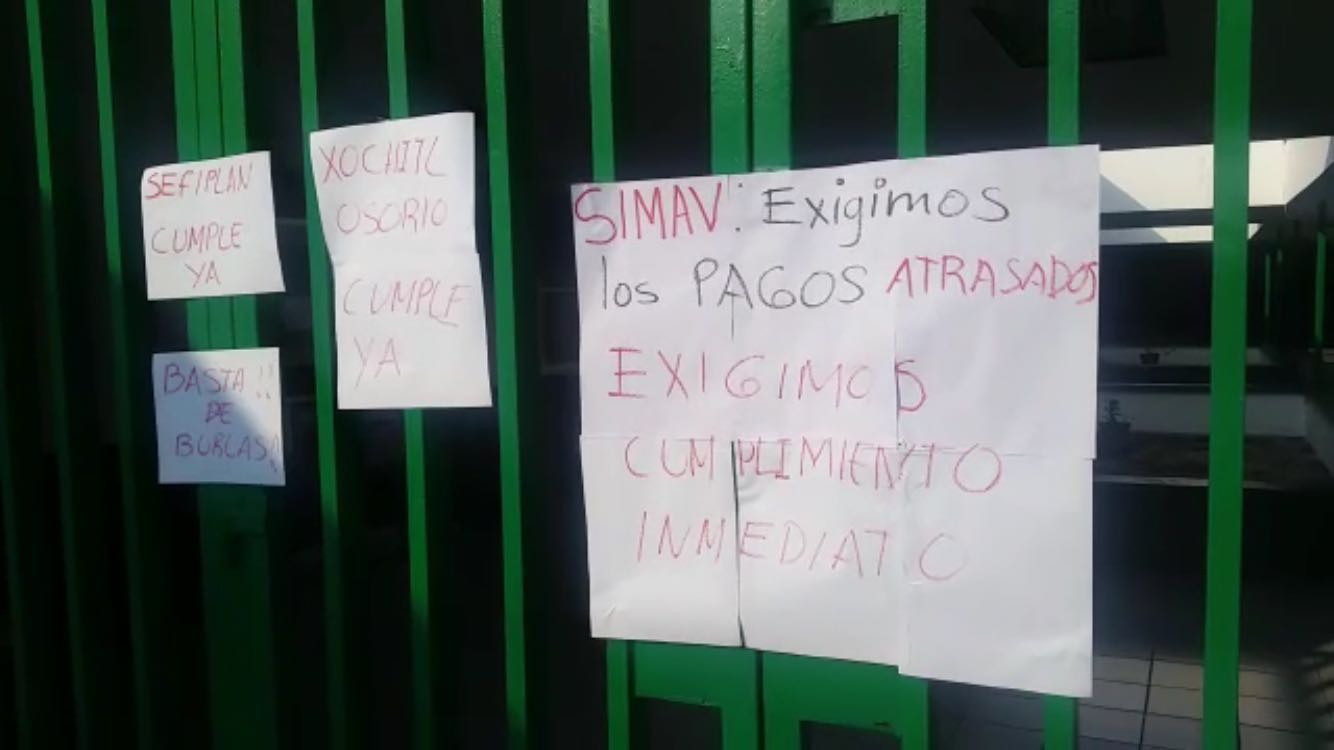 SEFIPLAN
CUMPLE
YA
BASTA!!
DE
BURLAS!
XOCHITL
OSORIO
CUMPLE
YA
SIMAV: Exigimos
los PAGOS ATRASADOS
EXIGIMOS
CUMPLIMIENTO
INMEDIATO